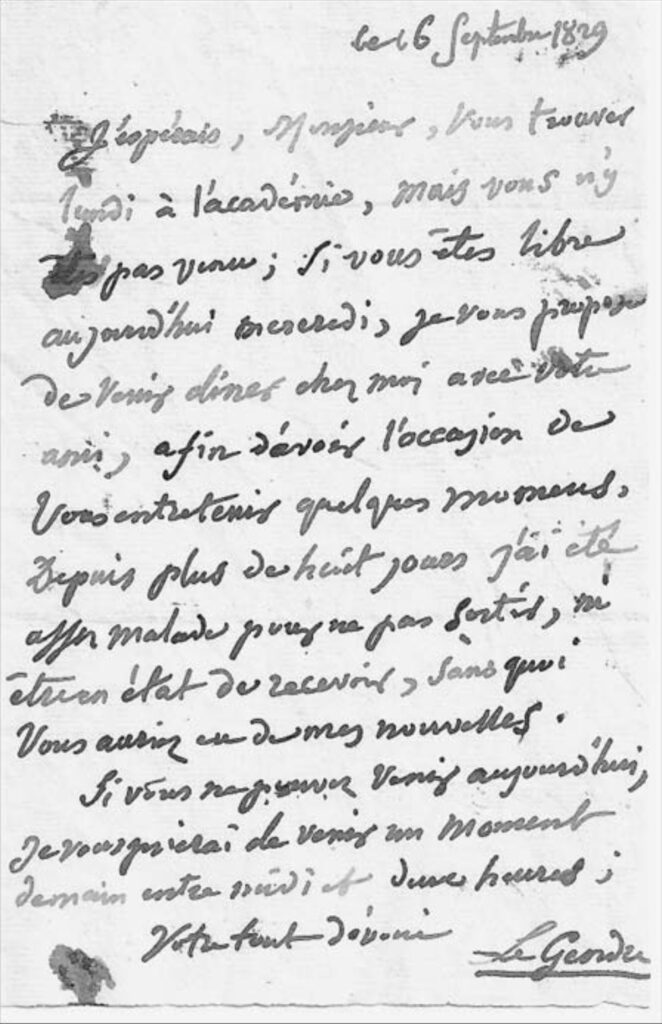 le 16 Septembre 1829
J'espérais, Monsieur, vous trouver
lundi à l'académie, mais vous n'y
êtes pas venu; Si vous êtes libre
aujourd'hui mercredi, je vous propose
de venir diner chez moi avec votre
ami, afin d'avoir l'occasion de
Vous entretenir quelques momens.
Depuis plus de huit jours j'ai été
assez malade pour ne pas sortir, ni
être en état de recevoir, sans quoi
Vous auriez eu de mes nouvelles.
Si vous ne pouvez venir aujourd'hui,
Je vous prierai de venir un moment
demain entre midi et deux heures;
Votre tout dévoué
Le Gendre